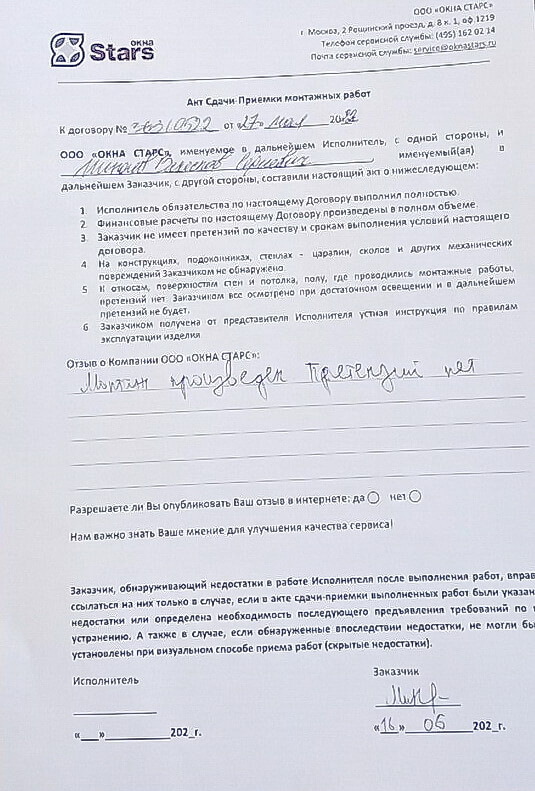 ООО «ОКНА СТАРС»
г. Москва, 2 Рощинский проезд, д. 8 к. 1, оф.1219
Телефон сервисной службы: (495) 162 02 14
Почта сервисной службы: service@oknastars.ru
ОКНА
Stars
Акт Сдачи-Приемки монтажных работ
К договору № от «27» мая 20
ООО «ОКНА СТАРС», именуемое в дальнейшем Исполнитель, с одной стороны, и
именуемый(ая) в
дальнейшем Заказчик, с другой стороны, составили настоящий акт о нижеследующем:
1. Исполнитель обязательства по настоящему Договору выполнил полностью.
2. Финансовые расчеты по настоящему Договору произведены в полном объеме.
3. Заказчик не имеет претензий по качеству и срокам выполнения условий настоящего
договора.
4. На конструкциях, подоконниках, стеклах - царапин, сколов и других механических
повреждений Заказчиком не обнаружено.
5. К откосам, поверхностям стен и потолка, полу, где проводились монтажные работы,
претензий нет. Заказчиком все осмотрено при достаточном освещении и в дальнейшем
претензий не будет.
6. Заказчиком получена от представителя Исполнителя устная инструкция по правилам
эксплуатации изделия
Отзыв о Компании ООО «ОКНА СТАРС»:
Монтаж произведен Претензий нет
Разрешаете ли Вы опубликовать Ваш отзыв в интернете: да нет
Нам важно знать Ваше мнение для улучшения качества сервиса!
Заказчик, обнаруживающий недостатки в работе Исполнителя после выполнения работ, вправ
ссылаться на них только в случае, если в акте сдачи-приемки выполненных работ были указан
недостатки или определена необходимость последующего предъявления требований по и
устранению. А также в случае, если обнаруженные впоследствии недостатки, не могли бы
установлены при визуальном способе приема работ (скрытые недостатки).
Исполнитель
Заказчик
«___»____________202_г.
«16» 06 202_г.